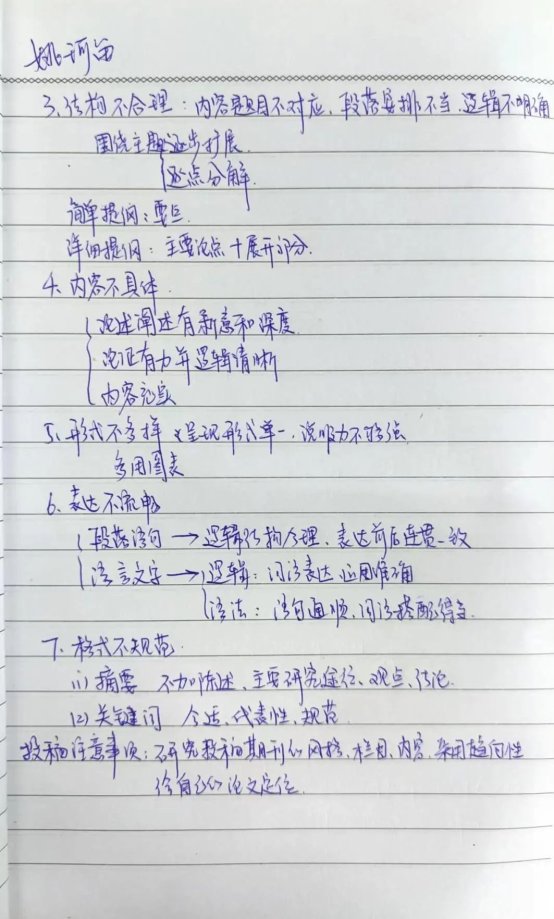 姚珂苗
3、结构不合理：内容题目不对应、段落安排不当、逻辑不明确
围绕主题逐步扩展
逐点分解
简单提纲：要点
详细提纲：主要论点＋展开部分.
4、内容不具体
论述阐述有新意和深度
论证有力并逻辑清晰
内容充实
5、形式不多样 呈现形式单一、说服力不够强
多用图表
6、表达不流畅
段落语句→逻辑结构合理、表达前后连贯一致
语言文字→逻辑：词语表达应用准确
语法：语句通顺,词语搭配得当.
7、格式不规范
(1)摘要 不加陈述、主要研究途径、观点、结论.
(2)关键词 个适、代表性、规范
投稿注意事项：研究投稿期刊的风格、栏目、内容、采用趋向性
给自己的论文定位.